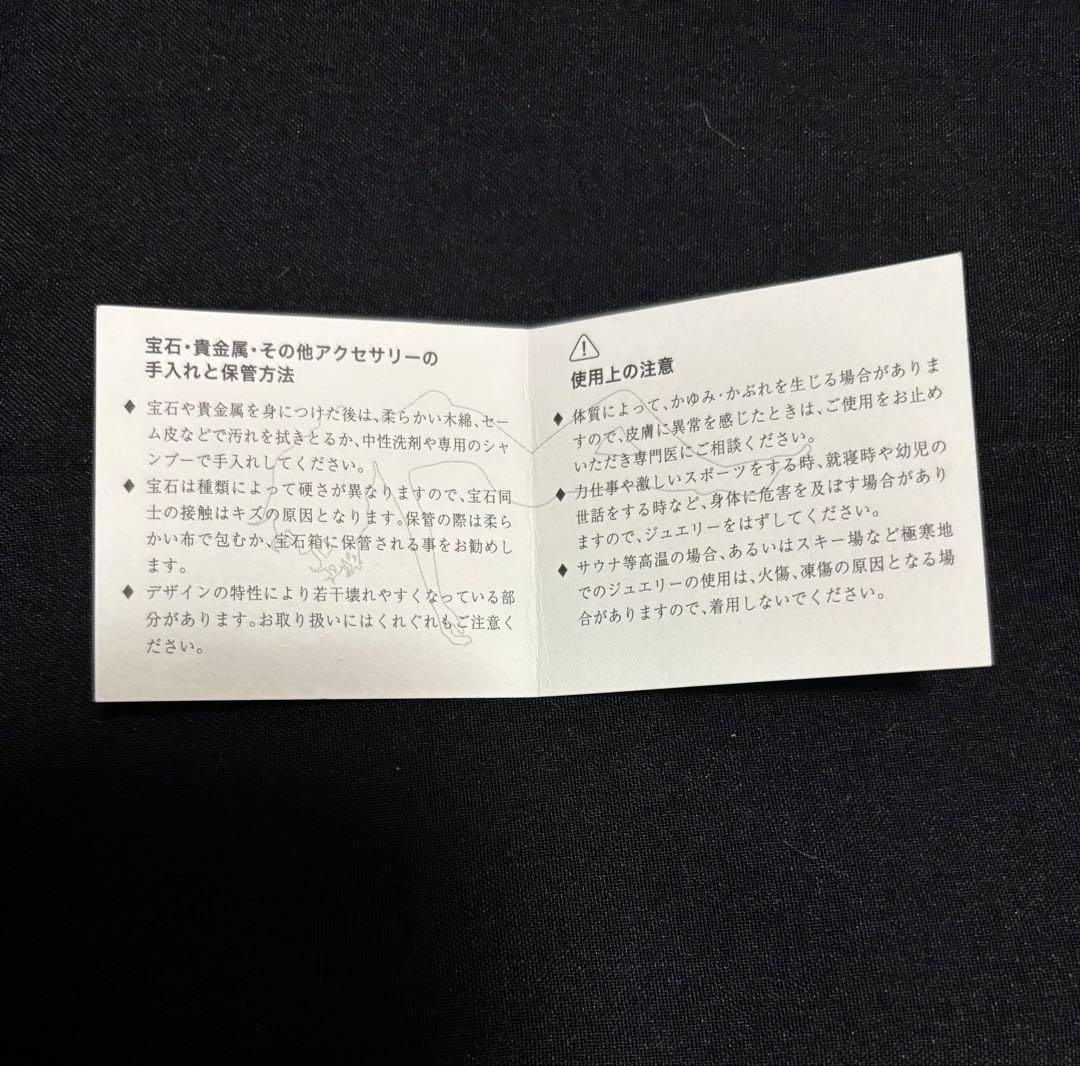 宝石・貴金属・その他アクセサリーの
手入れと保管方法
♦ 宝石や貴金属を身につけた後は、柔らかい木綿、セー
ム皮などで汚れを拭きとるか、中性洗剤や専用のシャ
ンプーで手入れしてください。
♦ 宝石は種類によって硬さが異なりますので、宝石同
士の接触はキズの原因となります。保管の際は柔ら
かい布で包むか、宝石箱に保管される事をお勧めし
ます。
♦ デザインの特性により若干壊れやすくなっている部
分があります。お取り扱いにはくれぐれもご注意く
ださい。
使用上の注意
♦ 体質によって、かゆみ・かぶれを生じる場合がありま
すので、皮膚に異常を感じたときは、ご使用をお止め
いただき専門医にご相談ください。
♦ 力仕事や激しいスポーツをする時、就寝時や幼児の
世話をする時など、身体に危害を及ぼす場合があり
ますので、ジュエリーをはずしてください。
♦ サウナ等高温の場合、あるいはスキー場など極寒地
でのジュエリーの使用は、火傷、凍傷の原因となる場
合がありますので、着用しないでください。